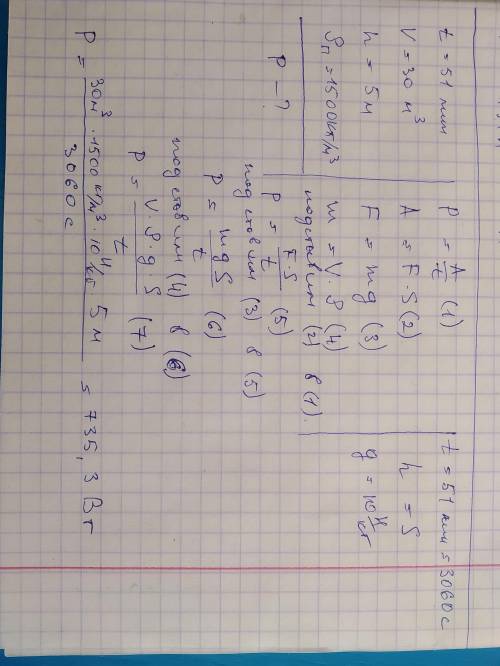 t = 51 мин
V = 30 м³
h = 5 м
ρп = 1500 кг/м³
P – ?
P = A/t (1)
A = F · S (2)
F = mg (3)
m = V · ρ (4)
подставим (2) в (1).
P = F·S/t (5)
подставим (3) в (5)
P = mgS/t (6)
подставим (4) в (6)
P = V·ρ·g·S/t (7)
t = 51 мин = 3060 с
h = S
g = 10 Н/кг
P = 30 м³ · 1500 кг/м³ · 10 Н/кг · 5 м / 3060 с = 735,3 Вт